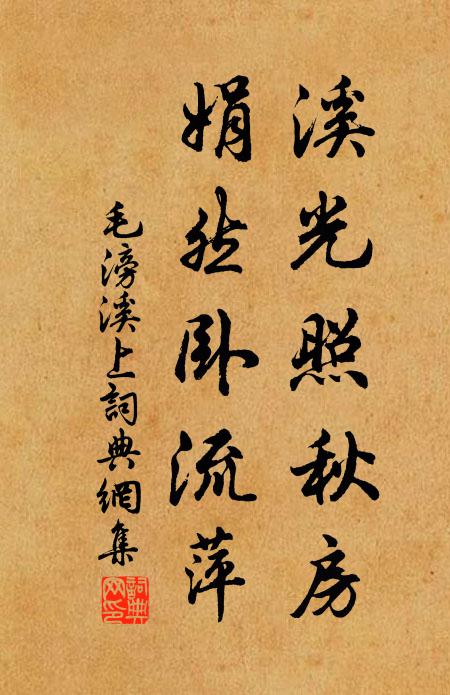 溪光照秋房
娟然卧流萍
毛滂溪上詞典網集
詞典